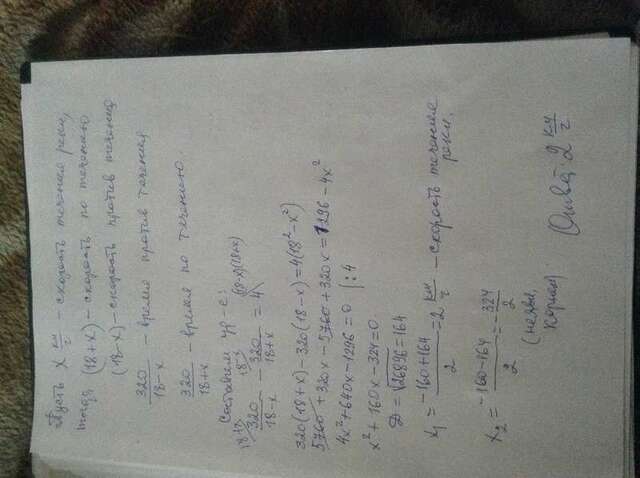 Пусть x км/ч – скорость течения реки,
тогда (18+x) – скорость по течению
(18-x) – скорость против течения
320/(18-x) – время против течения
320/(18+x) – время по течению.
Составим ур-е:
18+x 18-x (18-x)(18+x)
320/(18-x) - 320/(18+x) = 4
320(18+x)-320(18-x)=4(18²-x²)
5760+320x-5760+320x=1296-4x²
4x²+640x-1296=0 |:4
x²+160x-324=0
D=√26896=164
x₁=(-160+164)/2=2 км/ч – скорость течения
реки.
x₂=(-160-164)/2=-324/2
(не явл.
корнем)
Ответ: 2 км/ч